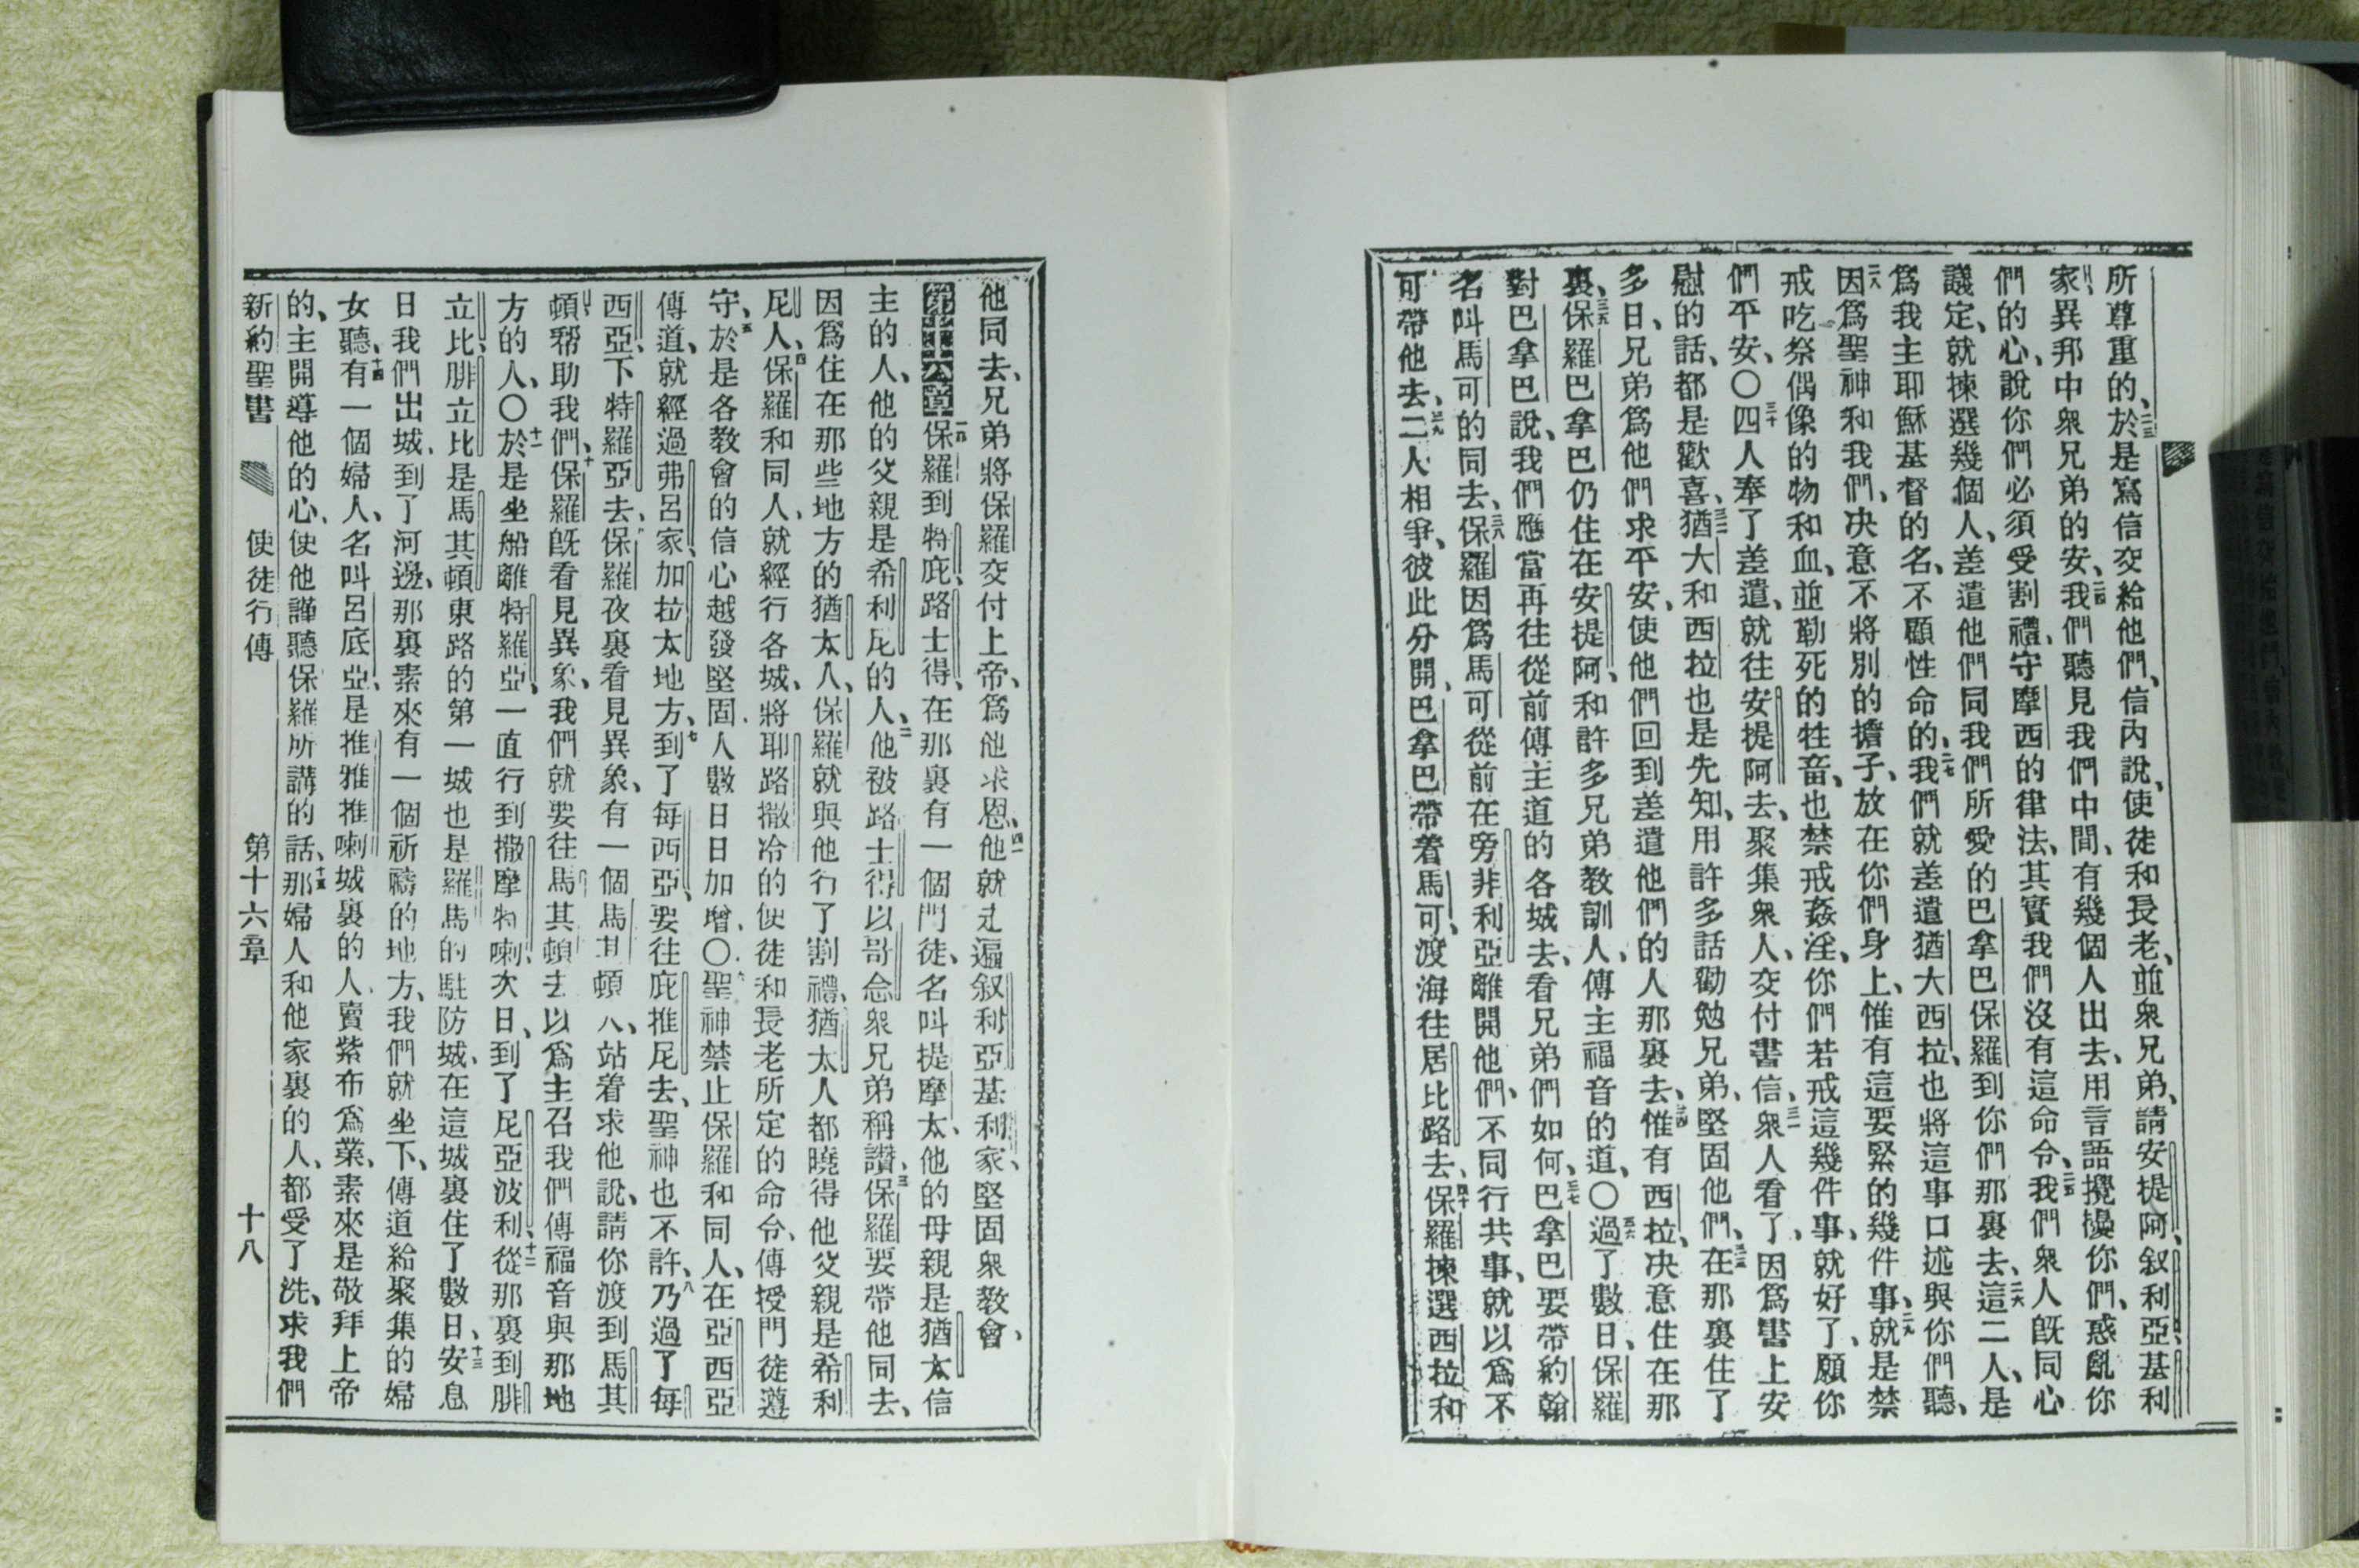 所尊重的、二三於是寫信交給他們、信內說、使徒和長老、並衆兄弟、請安提阿、叙利亞、基利
家、異邦中衆兄弟的安、二四我們聽見我們中間、有幾個人出去、用言語攪擾你們、惑亂你
們的心、說你們必須受割禮、守摩西的律法、其實我們沒有這命令、二五我們衆人旣同心
議定、就揀選幾個人、差遣他們同我們所愛的巴拿巴保羅到你們那裏去、二六這二人、是
爲我主耶穌基督的名、不顧性命的、二七我們就差遣猶大西拉、也將這事口述與你們聽、
二八因爲聖神和我們、决意不將別的擔子、放在你們身上、惟有這要緊的幾件事、二九就是禁
戒吃祭偶像的物和血、並勒死的牲畜、也禁戒姦淫、你們若戒這幾件事、就好了、願你
們平安、○三十四人奉了差遣、就往安提阿去、聚集衆人、交付書信、三一衆人看了、因爲書上安
慰的話、都是歡喜、三二猶大和西拉也是先知、用許多話勸勉兄弟、堅固他們、三三在那裏住了
多日、兄弟爲他們求平安、使他們回到差遣他們的人那裏去、三四惟有西拉、决意住在那
裏、三五保羅巴拿巴仍住在安提阿、和許多兄弟教訓人、傳主福音的道、○三六過了數日、保羅
對巴拿巴說、我們應當再往從前傳主道的各城去、看兄弟們如何、三七巴拿巴要帶約翰
名叫馬可的同去、三八保羅因爲馬可從前在旁非利亞離開他們、不同行共事、就以爲不
可帶他去、三九二人相爭、彼此分開、巴拿巴帶着馬可、渡海往居比路去、四十保羅揀選西拉和
他同去、兄弟將保羅交付上帝、爲他求恩、四一他就走遍叙利亞基利家、堅固衆教會、
第十六章一保羅到特庇、路士得、在那裏有一個門徒、名叫提摩太、他的母親是猶太信
主的人、他的父親是希利尼的人、二他被路士得以哥念衆兄弟稱讚、三保羅要帶他同去、
因爲住在那些地方的猶太人、保羅就與他行了割禮、猶太人都曉得他父親是希利
尼人、四保羅和同人、就經行各城、將耶路撒冷的使徒和長老所定的命令、傳授門徒遵
守、五於是各教會的信心越發堅固、人數日日加增、○六聖神禁止保羅和同人、在亞西亞
傳道、就經過弗呂家、加拉太地方、七到了每西亞、要往庇推尼去、聖神也不許、八乃過了每
西亞、下特羅亞去、九保羅夜裏看見異象、有一個馬其頓人、站着求他說、請你渡到馬其
頓、帮助我們、十保羅旣看見異象、我們就要往馬其頓去、以爲主召我們傳福音與那地
方的人、○十一於是坐船離特羅亞、一直行到撒摩特喇、次日、到了尼亞波利、十二從那裏到腓
立比、腓立比是馬其頓東路的第一城、也是羅馬的駐防城、在這城裏住了數日、十三安息
日我們出城、到了河邊、那裏素來有一個祈禱的地方、我們就坐下、傳道給聚集的婦
女聽、十四有一個婦人、名叫呂底亞、是推雅推喇城裏的人、賣紫布爲業、素來是敬拜上帝
的、主開導他的心、使他謹聽保羅所講的話、十五那婦人和他家裏的人、都受了洗、求我們
新約聖書 使徒行傳 第十六章 十八